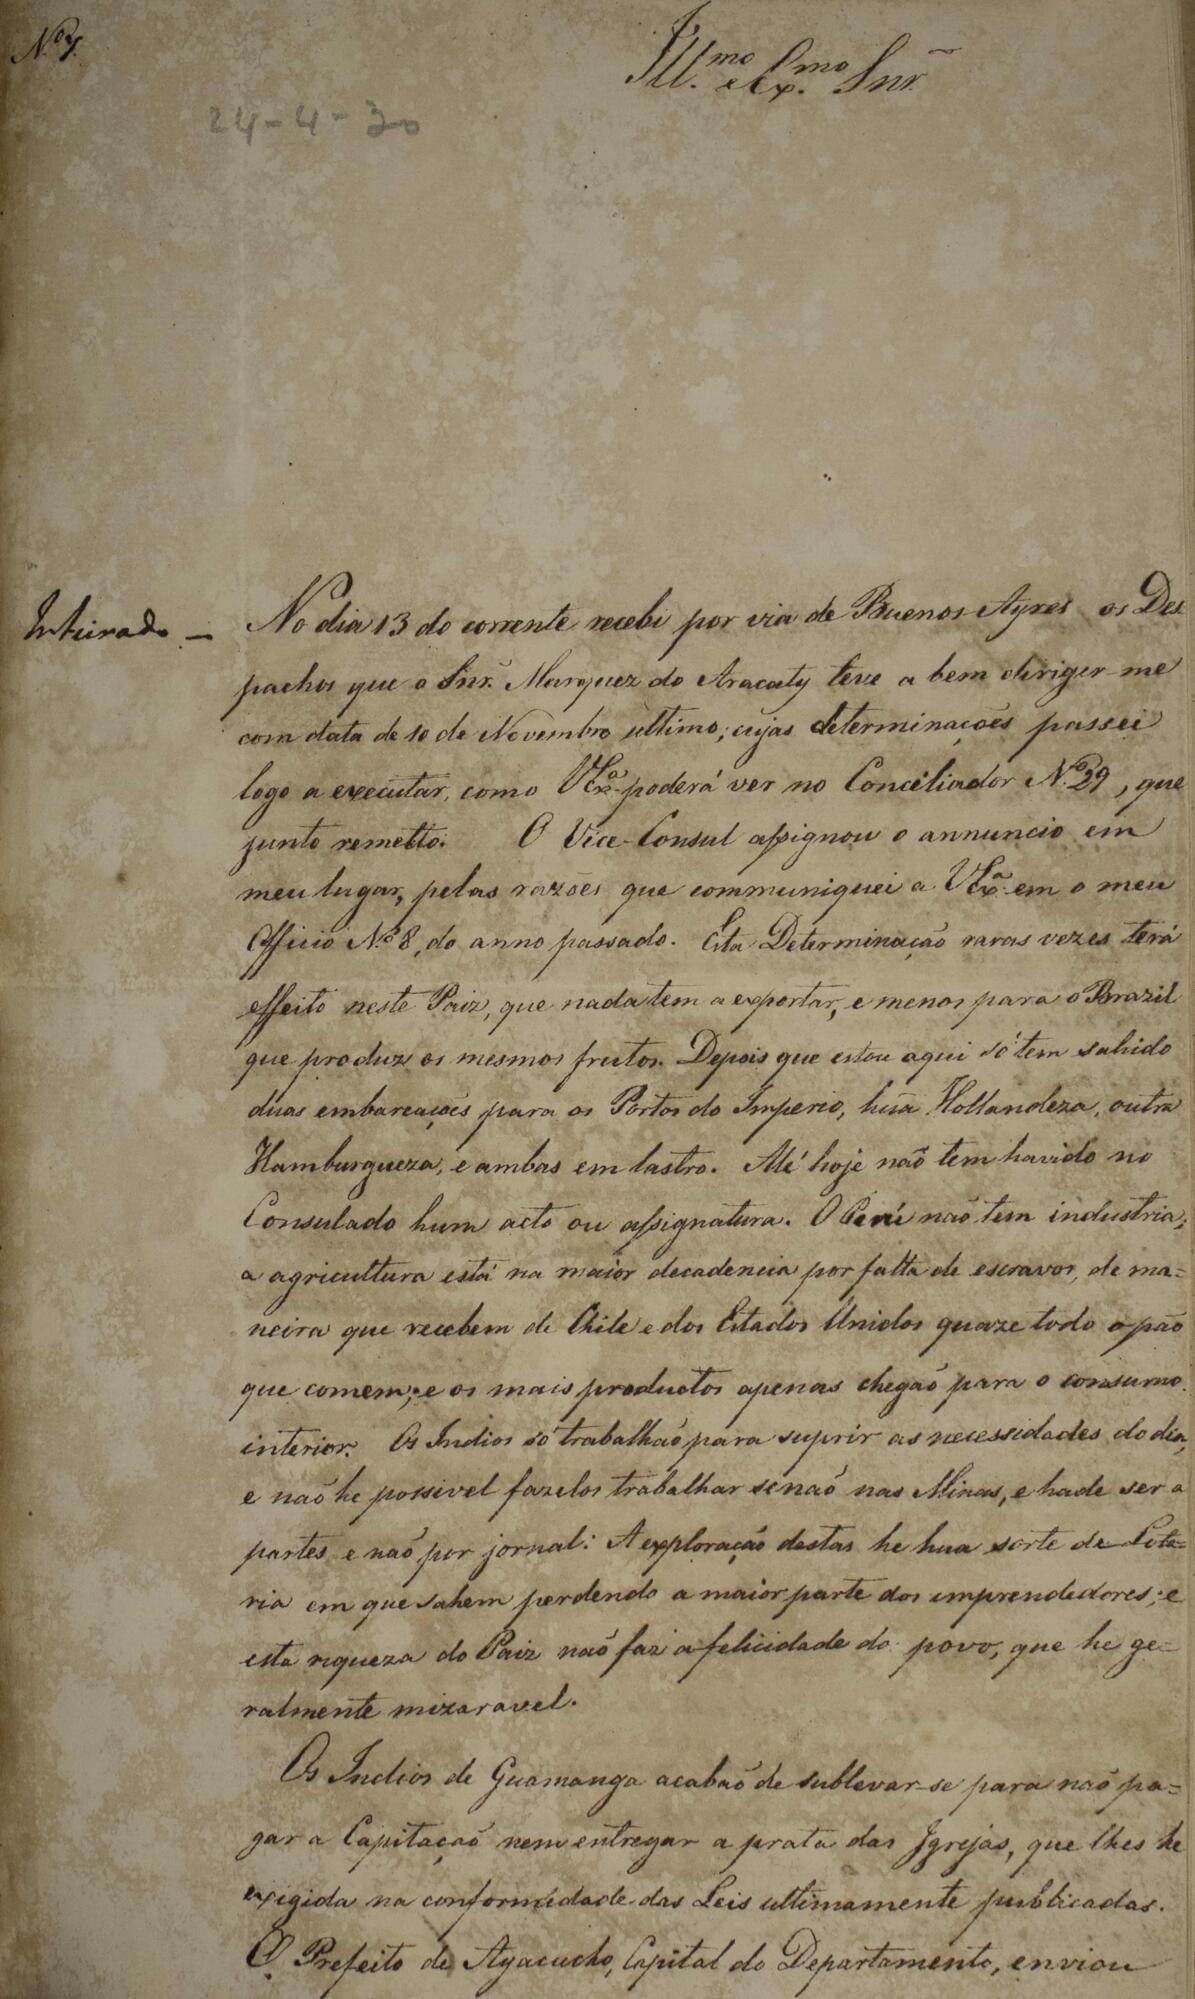 Nº 7.
Ill.mo e Ex.mo Snr.
24-4-30
Inteirado —
No dia 13 do corrente recebi por via de Buenos Ayres os Des
pachos que o Snr. Marquez do Aracaty teve a bem diriger-me
com data de 10 de Novembro ultimo; cujas determinações passei
logo a executar, como V.Exª. poderá ver no Conciliador Nº 29, que
junto remetto. O Vice-Consul assignou o annuncio em
meu lugar, pelas razões que communiquei a V.Exª. em o meu
Officio Nº 8, do anno passado. Esta Determinação raras vezes terá
effeito neste Paiz, que nada tem a exportar, e menos para o Brazil
que produz os mesmos frutos. Depois que estou aqui só tem sahido
duas embarcações para os Portos do Imperio, huã Hollandeza, outra
Hamburgueza, e ambas em lastro. Até hoje naõ tem havido no
Consulado hum acto ou assignatura. O Perú naõ tem industria;
a agricultura está na maior decadencia por falta de escravos, de ma=
neira que recebem de Chile e dos Estados Unidos quaze todo o pão
que comem; e os mais productos apenas chegaõ para o consumo
interior. Os Indios só trabalhaõ para suprir as necessidades do dia,
e naõ he possivel fazelos trabalhar senaõ nas Minas, e hade ser a
partes e naõ por jornal: A exploração destas he hua sorte de Lote=
ria em que sahem perdendo a maior parte dos emprendedores; e
esta riqueza do Paiz naõ faz a felicidade do povo, que he ge=
ralmente mizaravel.
Os Indios de Guamanga acabaõ de sublevar-se para naõ pa=
gar a Capitaçaõ nem entregar a prata das Igrejas, que lhes he
exigida na conformidade das Leis ultimamente publicadas.
O Prefeito de Ayacucho, Capital do Departamento, enviou